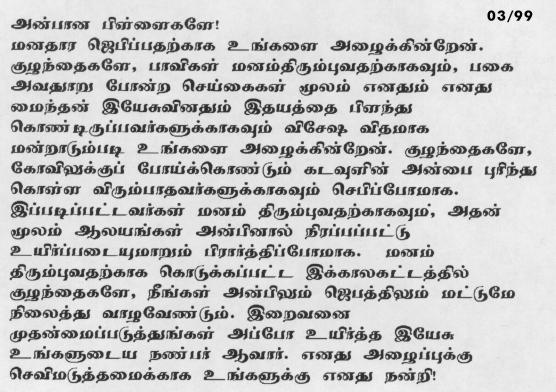 03/99
அன்பான பிள்ளைகளே!
மனதார ஜெபிப்பதற்காக உங்களை அழைக்கின்றேன்.
குழந்தைகளே, பாவிகள் மனம்திரும்புவதற்காகவும், பகை
அவதூறு போன்ற செய்கைகள் மூலம் எனதும் எனது
மைந்தன் இயேசுவினதும் இதயத்தை பிளந்து
கொண்டிருப்பவர்களுக்காகவும் விசேஷ விதமாக
மன்றாடும்படி உங்களை அழைக்கின்றேன். குழந்தைகளே,
கோவிலுக்குப் போய்க்கொண்டும் கடவுளின் அன்பை புரிந்து
கொள்ள விரும்பாதவர்களுக்காகவும் செபிப்போமாக.
இப்படிப்பட்டவர்கள் மனம் திரும்புவதற்காகவும், அதன்
மூலம் ஆலயங்கள் அன்பினால் நிரப்பப்பட்டு
உயிர்ப்படையுமாறும் பிரார்த்திப்போமாக. மனம்
திரும்புவதற்காக கொடுக்கப்பட்ட இக்காலகட்டத்தில்
குழந்தைகளே, நீங்கள் அன்பிலும் ஜெபத்திலும் மட்டுமே
நிலைத்து வாழவேண்டும். இறைவனை
முதன்மைப்படுத்துங்கள் அப்போ உயிர்த்த இயேசு
உங்களுடைய நண்பர் ஆவார். எனது அழைப்புக்கு
செவிமடுத்தமைக்காக உங்களுக்கு எனது நன்றி!